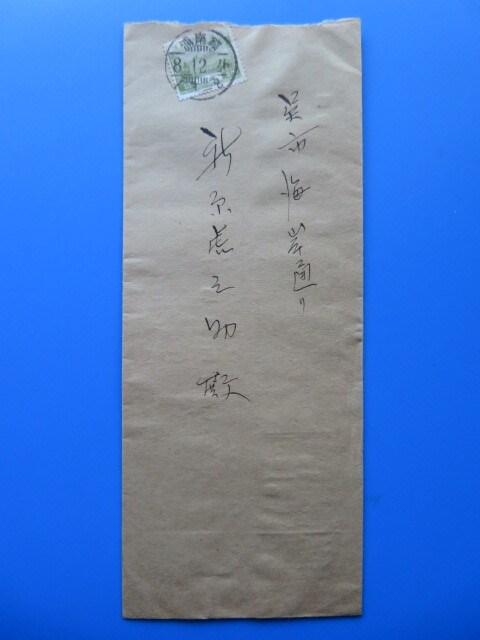 呉市海岸通り
新原虎之助殿
8.12.4